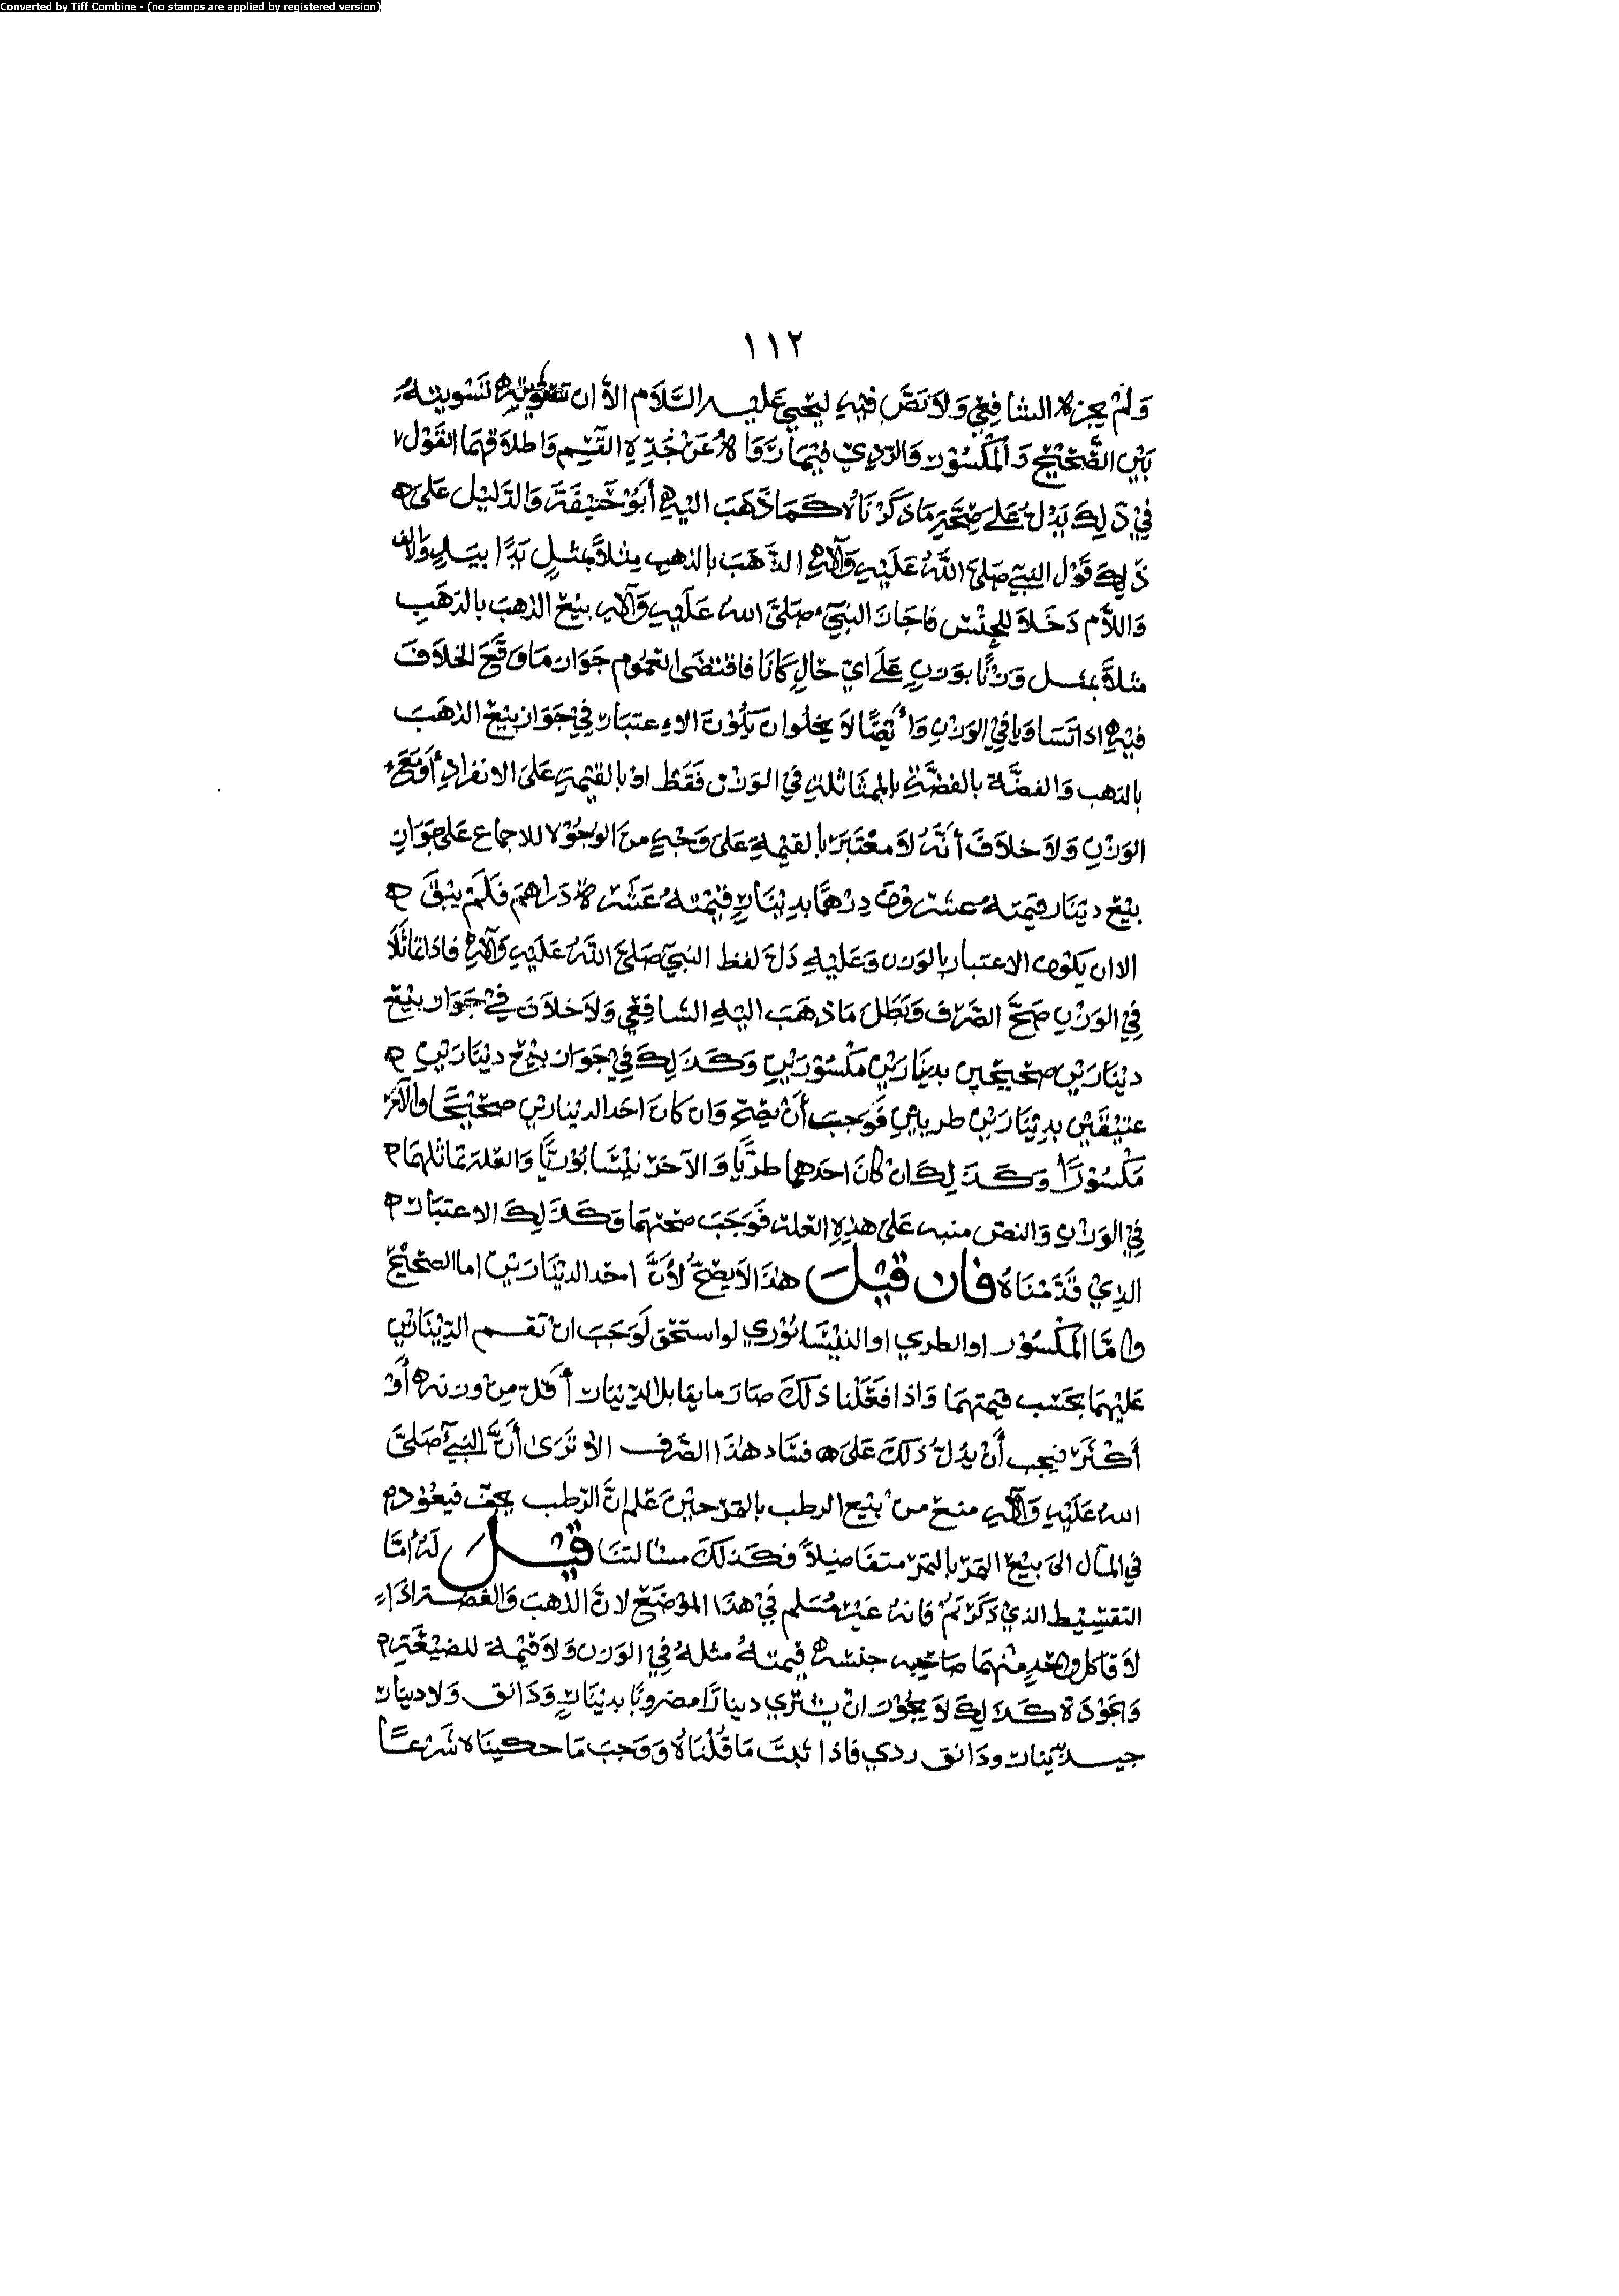 Converted by Tiff Combine - (no stamps are applied by registered version)
١١٢
وَلَمْ يجزه الشافِعِيّ وَلاَ نَصَّ فيهِ ليَحْيىَ عَليه السَّلاَم الاّ ان لتَسْويتهُ
بَيْن الصَّحْيْحِ وَالمَكْسُوْر وَالرّديّ فيْمَا رَوَاهُ عَنْ جَدِّهِ القَسِم وَاطلاَقهمَا القَوْل
فيْ ذَلِكَ يَدْلُ عَلىَ صِحَّةِ مَا ذَكَرْنَاهُ كَمَا ذَهَبَ اليْهِ أبُوْ حَنيْفَةَ وَالدَليْل عَلىَ
ذَلِكَ قَوْل النبَيّ صَلىَّ اللهُ عَلَيْهِ وَآلهِ الذَهَبَ بالذهبِ مِثلاً بمثلٍ يَدًا بيَدٍ وَالالف
وَاللاَّم دَخَلاَ للجِنْسِ فاجَازَ النبَيّ صَلىَّ اللهُ عَلَيهِ وَآلهِ بيْعَ الذهَبَ بالذهَبِ
مثلاً بمثل وَزْنًا بوَزنٍ عَلىَ ايّ حَالٍ كَانَا فاقتضَى العمُوم جَوَاز مَا وَقَعَ الخلاَفَ
فيْهِ اذا تَسَاوَيا فيْ الوَزْنِ وَأيْضًا لاَ يخلوا ن يَكُوْنَ الاِعتبَار فيْ جَوَاز بَيْع الذهَبَ
بالذهب وَالفضَّة بالفضَّةِ بالممَاثلةِ فيْ الوَزْن فَقَط اوْ بالقيْمَةِ عَلىَ الانفرَادِ أوْ مَعَ
الوَزْنِ وَلاَ خلاَفَ أنَّهُ لاَ مُعْتَبَرَ بالقيْمَةِ عَلىَ وَجْهٍ منَ الوُجُوْه للاجماع عَلىَ جَوَازِ
بيْعِ دينَار قيْمتهُ عشرْوْنَ دِرْهَمًا بدِيْنَارٍ قيْمْتهُ عَشَرَة دَرَاهمَ فَلَمْ يبْقَ
الا ان يَكُوْن الاعتبَار بالوَزن وَعَليْهِ دَلَّ لفظ النبَيّ صَلىَّ اللهُ عَلَيْهِ وَآلهِ فاذا تماثَلاَ
فيْ الوَزْنِ صَحَّ الصَّرْف وَبَطَلَ مَا ذهَبَ اليْهِ الشافِعِيّ وَلاَ خلاَفَ فيْ جَوَاز بيْع
دينَارَيْن صَحيْحَيْن بدينَارَيْن مَكْسُوْرَيْن وَكَذَلِكَ فيْ جَوَاز بيْع دينَارَيْن
عتيْقَيْن بدِيْنَارَيْن طريايْن فَوَجَبَ أنْ يصِحّ وَان كَانَ احَد الديْنارَيْن صَحيْحًا وَالآخَرَ
مَكْسُوْرًا وَكَذَلِكَ انْ كَانَ احَدهما طريًّا وَالآخَرَ نيْشَابُوْريًّا وَالعلة تماثلهمَا
فيْ الوَزْنِ وَالنصّ منبه عَلىَ هذِهِ العلة فَوَجَبَ صحّتهمَا وَكَذَلِكَ الاعتبَار
الذيْ قدَّمْنَاهُ فَان قيْلَ هَذَا لاَ يصِحُّ لأنَّ احَد الديْنَارَيْن اما الصّحِيْح
وَامَّا المَكْسُوْر اوا لطري او النيْشَابُوْري لو استحق لَوَجَبَ انْ تقسم الدِيْنَارَيْن
عَليْهِمَا بحَسَب قيْمتهمَا وَاذا فعَلنا ذَلكَ صَارَ ما يقابل الديْنَار أقَلّ مِنْ وزنهِ أوْ
أكْثَرَ فيجب أنْ يدُلُّ ذَلكَ عَلىَ فسَاد هَذَا الصَّرف الاْ تَرَى أنَّ النبَيّ صَلىَّ
اللهُ عَلَيْهِ وَآلهِ منعَ منْ بيْع الرطب بالتمر حيْنَ عَلم انَّ الرّطب يجفّ فيعُوْد
في المآل الىَ بيْعِ التمر بالتمر متفاضِلاً فكَذلكَ مسْالتنَا قيْل لهُ امَّا
التقسِيْط الذيْ ذَكَرْتمُ فانهُ غيْر مُسَلم فيْ هَذَا المَوْضِع لانَّ الذهَبَ وَالفضة اذَا
لاَقا كل وَاحِدٍ منْهمَا صَاحبه جنسه قيْمتهُ مثلهُ فيْ الوَزن وَلاَ قيْمة للصيْغَةِ
وَالجوْدَة كَذَلِكَ لاَ يجُوْز انْ يشْتري دينارًا مضروبًا بديْنَارٍ وَدَانق وَلا ديْنار
جيد بديْنَار ودَانق ردي فاذا ثبتَ مَا قُلْنَاهُ وَوَجَبَ مَا حكينَاه شَرْعًا